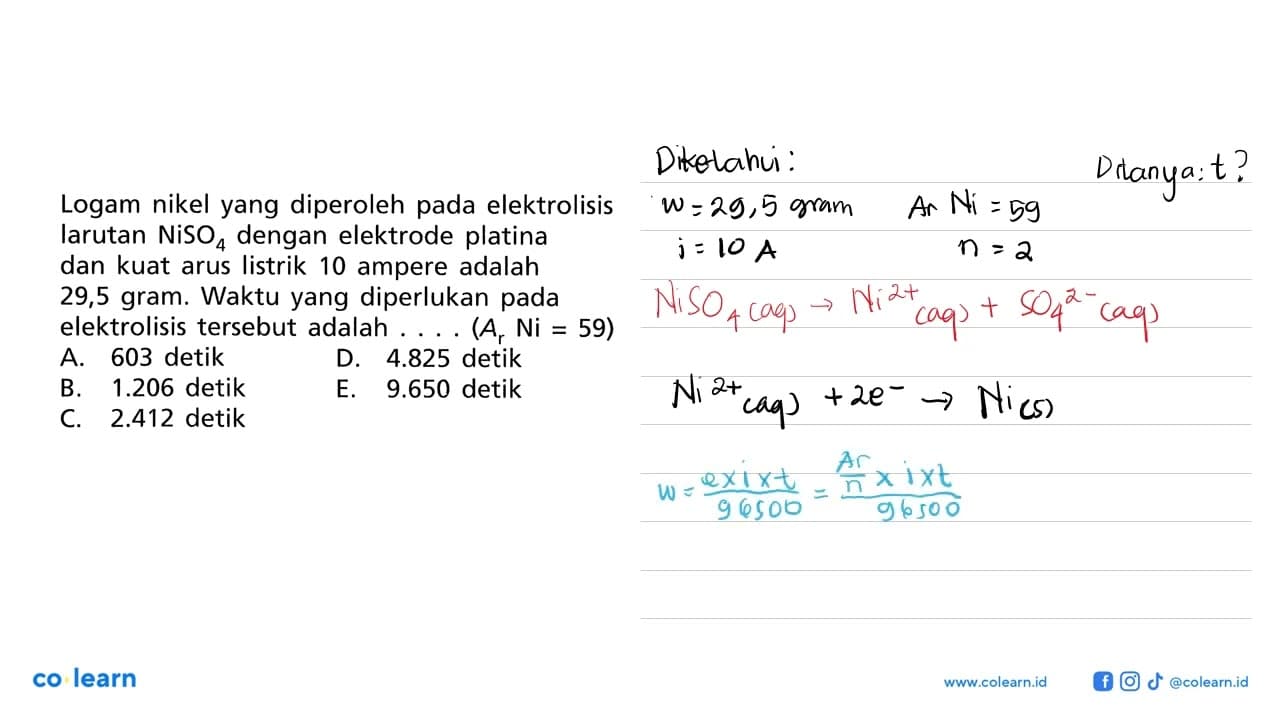 Logam nikel yang diperoleh pada elektrolisis
larutan NiSO₄ dengan elektrode platina
dan kuat arus listrik 10 ampere adalah
29,5 gram. Waktu yang diperlukan pada
elektrolisis tersebut adalah . . . . (Aᵣ Ni = 59)
A. 603 detik
B. 1.206 detik
C. 2.412 detik
D. 4.825 detik
E. 9.650 detik
Diketahui:
Ditanya: t?
w = 29,5 gram Ar Ni = 59
i = 10 A n = 2
NiSO₄ (aq) → Ni²⁺ (aq) + SO₄²⁻ (aq)
Ni²⁺ (aq) + 2e⁻ → Ni (s)
w = e x i x t / 96500 = Ar/n x i x t / 96500
co learn
www.colearn.id
@colearn.id